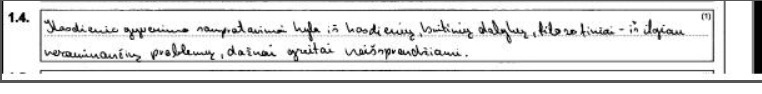 1.4. Kasdienio gyvenimo samprotavimai kyla iš kasdienių, buitinių dalykų, filosofiniai - iš ilgiau (1)
neraminančių problemų, dažnai greitai neišsprendžiami.